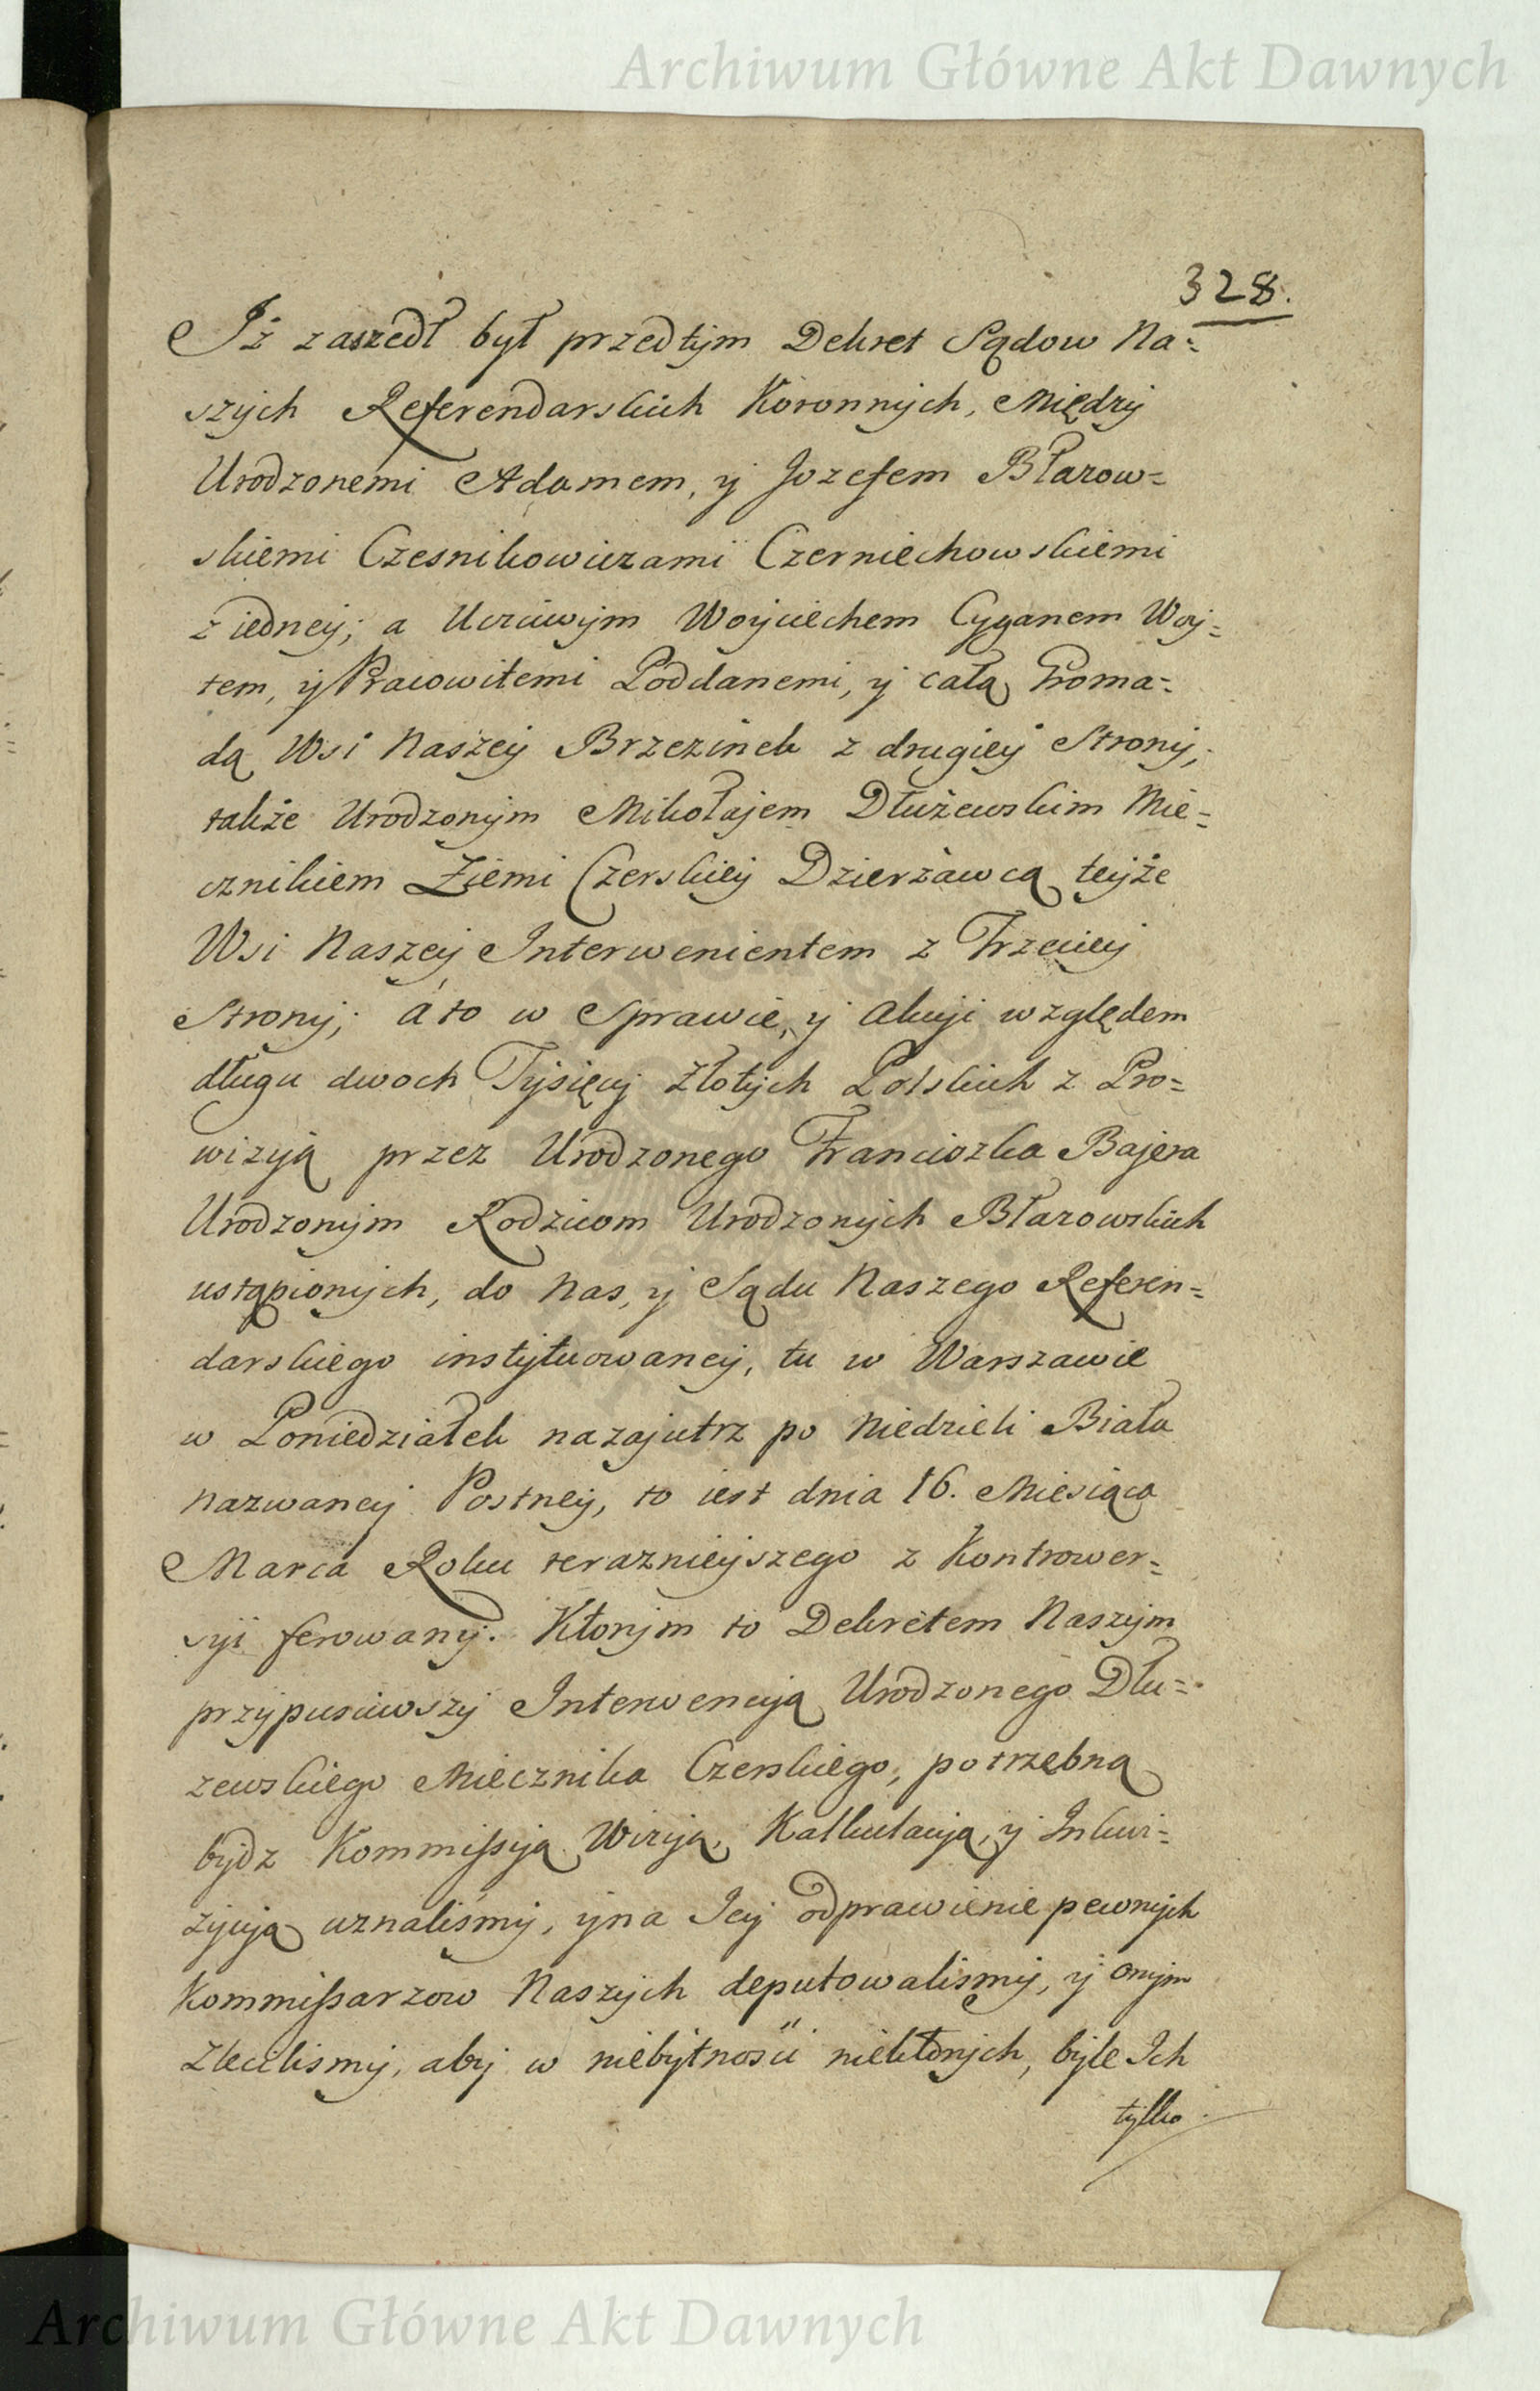 Archiwum Główne Akt Dawnych
328.
Iż zaszedł był przedtym Dekret Sądow Na=
szych Referendarskich Koronnych, Między
Urodzonemi Adamem, y Jozefem Błazow=
skiemi Czesnikowiczami Czerniechowskiemi
z iedney; a Uczciwym Woyciechem Cyganem Woy=
tem, y Pracowitemi Poddanemi, y całą Groma=
dą Wsi Naszey Brzezinek z drugiey Strony,
także Urodzonym Mikołajem Dłużewskim Mie=
cznikiem Ziemi Czerskiey Dzierżawcą teyże
Wsi Naszey Interwenientem z Trzeciey
Strony; á to w Sprawie, y Akcyi względem
długu dwoch Tysięcy Złotych Polskich z Pro=
wizyą przez Urodzonego Franciszka Bajera
Urodzonym Rodzicom Urodzonych Błazowskich
ustąpionych, do Nas, y Sądu Naszego Referen=
darskiego instytuowaney, tu w Warszawie
w Poniedziałek nazajutrz po Niedzieli Biała
nazwaney Postney, to iest dnia 16. Miesiąca
Marca Roku teraznieyszego z Kontrower=
syi ferowany. Ktorym to Dekretem Naszym
przypusciwszy Interwencyą Urodzonego Dłu=
zewskiego Miecznika Czerskiego, potrzebną
bydz Kommissyą Wizyą, Kalkulacyą, y Inkwi=
zycyą uznaliśmy, y na Jey odprawienie pewnych
Kommissarzow Naszych deputowalismy, y onym
Zlecilismy, aby w niebytnosci niektorych, byle Ich
tylko
Archiwum Główne Akt Dawnych